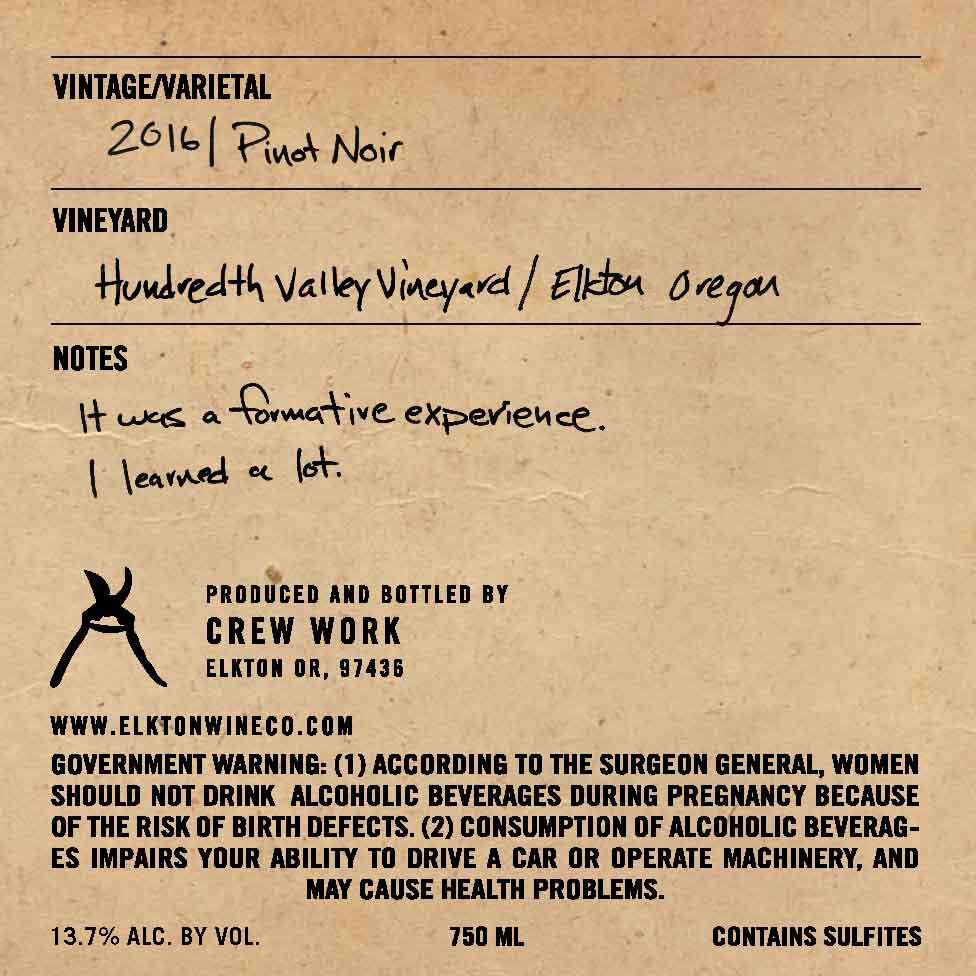 VINTAGE/VARIETAL
2016/ Pinot Noir
VINEYARD
Hundredth Valley Vineyard / Elkton Oregon
NOTES
It was a formative experience.
I learned a lot.
PRODUCED AND BOTTLED BY
CREW WORK
ELKTON OR, 97436
WWW.ELKTONWINECO.COM
GOVERNMENT WARNING: (1) ACCORDING TO THE SURGEON GENERAL, WOMEN
SHOULD NOT DRINK ALCOHOLIC BEVERAGES DURING PREGNANCY BECAUSE
OF THE RISK OF BIRTH DEFECTS. (2) CONSUMPTION OF ALCOHOLIC BEVERAG-
ES IMPAIRS YOUR ABILITY TO DRIVE A CAR OR OPERATE MACHINERY, AND
MAY CAUSE HEALTH PROBLEMS.
13.7% ALC. BY VOL. 750 ML CONTAINS SULFITES